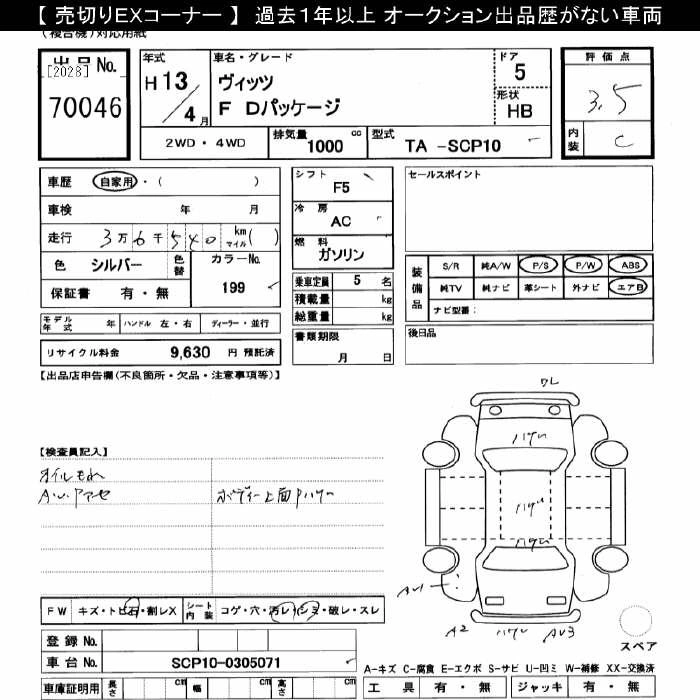 【 売切りEXコーナー 】 過去1年以上 オークション出品歴がない車両
(複合機)対応用紙
出品 No.
[2028]
70046
年式
H 13 / 4 月
車名・グレード
ヴィッツ
F Dパッケージ
ドア
5
形状
HB
2WD・4WD
排気量
1000 cc
型式
TA -SCP10
評価点
3.5
内装
C
車歴 自家用・( )
車検 年 月
走行 3万6千540 km マイル( )
色 シルバー 色替 カラーNo.
199
保証書 有・無
モデル年式 年 ハンドル 左・右 ディーラー・並行
リサイクル料金 9,630 円 預託済
シフト
F5
冷房
AC
燃料
ガソリン
乗車定員 5 名
積載量 kg
総重量 kg
書類期限
月 日
セールスポイント
装備品
S/R 純A/W P/S P/W ABS
純TV 純ナビ 革シート 外ナビ エアB
ナビ型番:
後日品
【出品店申告欄(不良箇所・欠品・注意事項等)】
【検査員記入】
オイルもれ
ボディー上面
ハガレ
ハガレ
ハガレ
A2
ハガレ
AU3
スペア
FW キズ・トビ石・割レX シート内装 コゲ・穴・汚レ・シミ・破レ・スレ
登録 No.
車台 No. SCP10-0305071
車庫証明用 長さ cm 幅 cm 高さ cm
A-キズ C-腐食 E-エクボ S-サビ U-凹ミ W-補修 XX-交換済
工具 有・無 ジャッキ 有・無